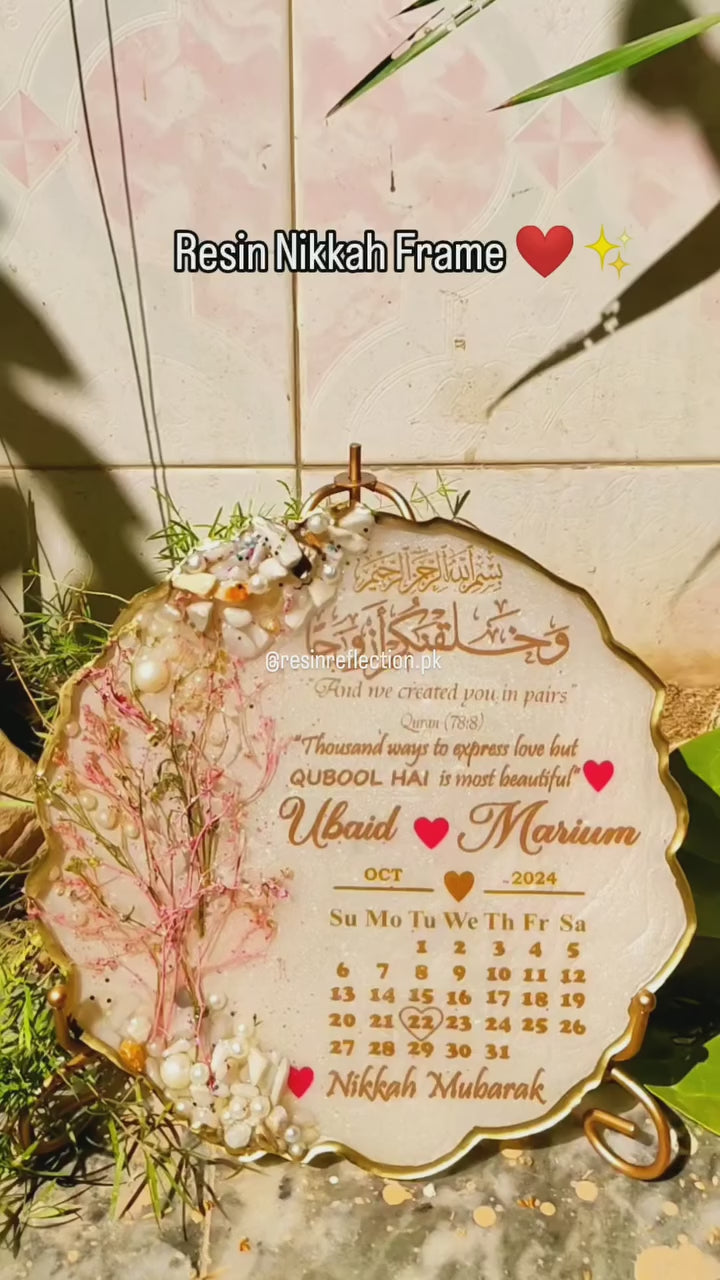 Resin Nikkah Frame ❤️✨
بسم الله الرحمن الرحيم
وخلقنكم أزوجا
@resinreflection.pk
"And we created you in pairs"
Quran (78:8)
"Thousand ways to express love but
QUBOOL HAI is most beautiful"
Ubaid Marium
OCT 2024
Su Mo Tu We Th Fr Sa
1 2 3 4 5
6 7 8 9 10 11 12
13 14 15 16 17 18 19
20 21 22 23 24 25 26
27 28 29 30 31
Nikkah Mubarak